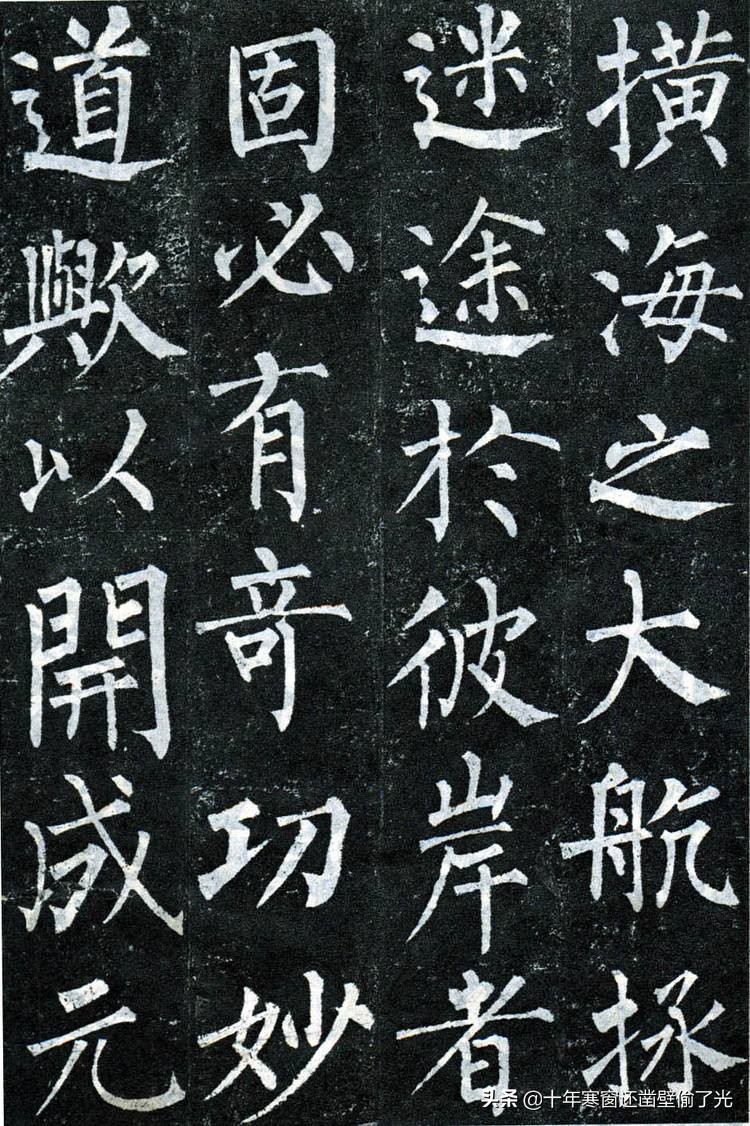 撗海之大航拯
迷途於彼岸者
固必有竒功妙
道歟以開成元
头条 @十年寒窗还凿壁偷了光